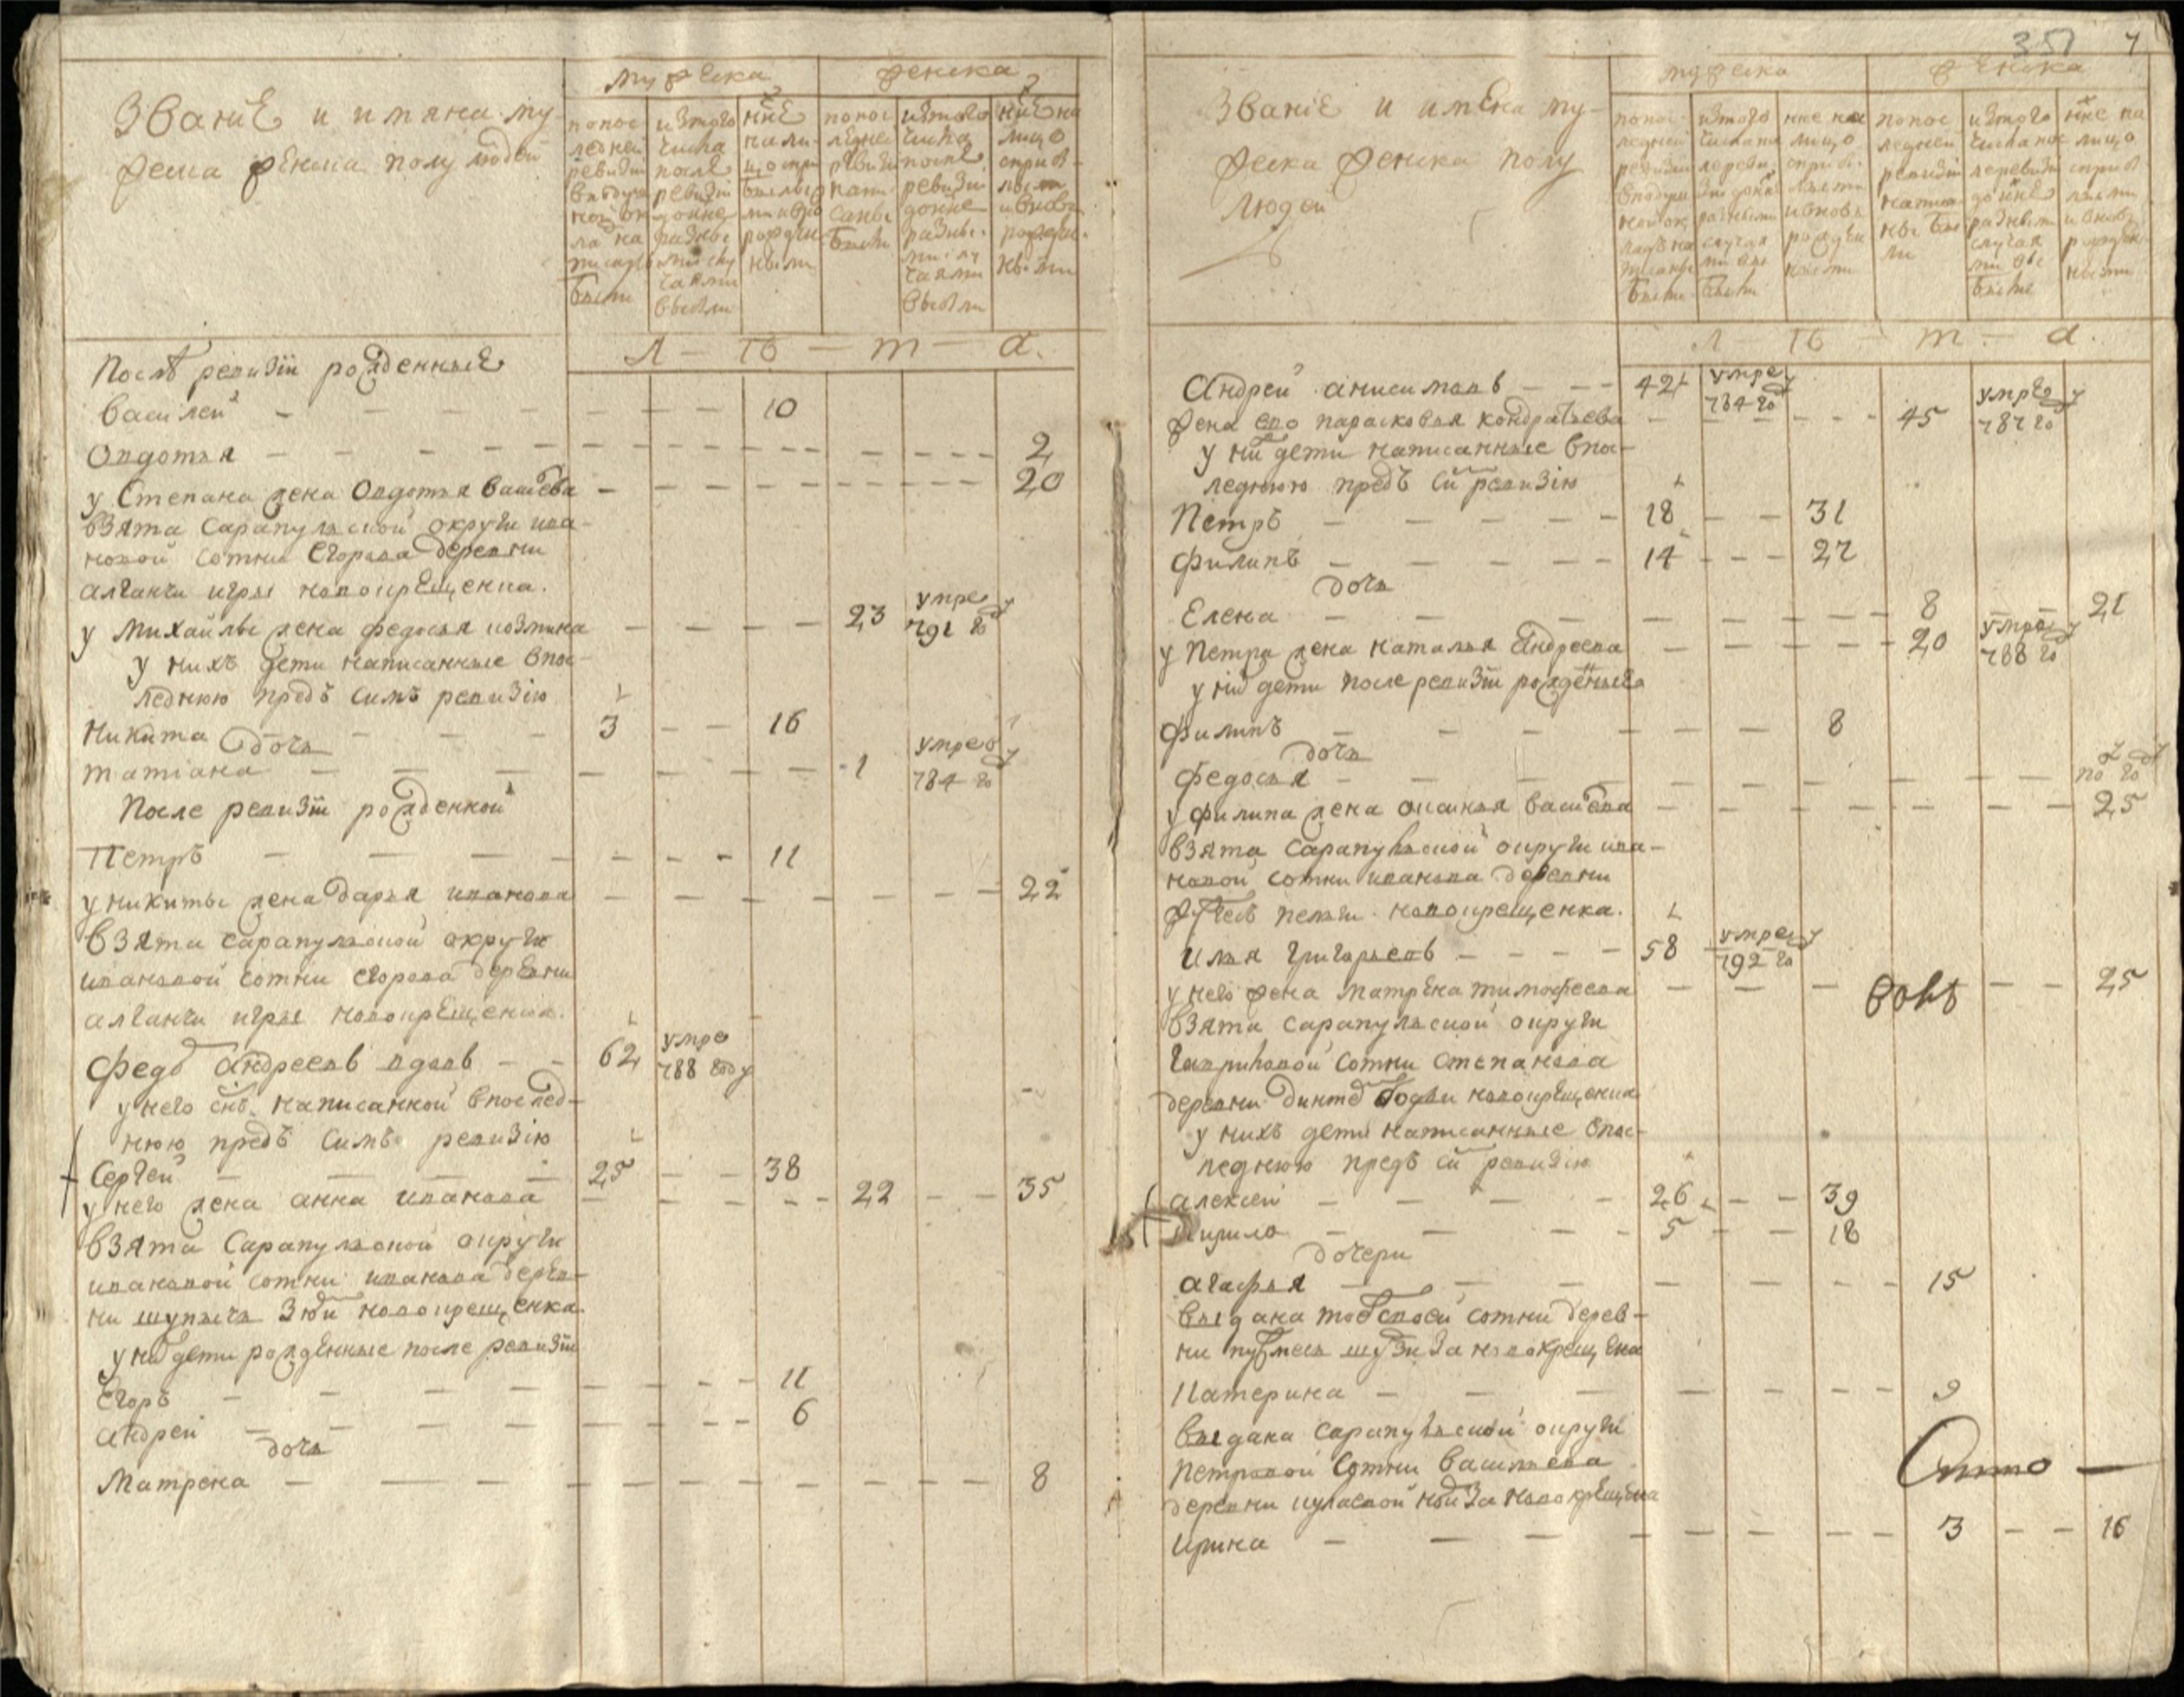 Званиѣ и имяна му-
жеска женска полу людей
мужеска
женска
попос
ледней
ревизїи
вподуш
ном ок
ладѣ на
писаны
были
изтого
числа
после
ревизїи
доннѣ
разны
ми слу
чаями
выбыли
ннѣ
нали-
цо спри
былыми
и вно
рожден
ными
попос
ледней
ревизїи
напи
саны
были
изтого
числа
после
ревизїи
донне
разны-
ми слу
чаями
выбыли
ннѣ на
лицо
сприб-
лыми
и вновь
рожден-
ными
Л — ѣ — т — а.
Послѣ ревизїи рожденныѣ
Василей — 10
Овдотья — 2
у Степана жена Овдотья васлѣва — 20
взята Сарапульской округи ива-
новой сотни Егорова деревни
алганчи игры новокрещенка.
у Михайлы жена федосья козмина — 23 умре 791 го
у нихъ дети написанные впос-
леднюю предъ симъ ревизїю
Никита — 3 — 16
дочь
татїана — 1 умре 784 го
После ревизїи рожденной
Петръ — 11
у никиты жена дарья иванова — 22
взята сарапульской округи
ивановой сотни егорова деревни
алганчи игры новокрещенка.
Федо андреевъ вдовъ — 62 умре 788 году
у него снъ написанной впослед-
нюю предъ симъ ревизїю
Сергей — 25 — 38
у него жена анна иванова — 22 — 35
взята Сарапульской округи
ивановой сотни иванова дерев-
ни шупысь Зюй новокрещенка.
у ни дети рожденные после ревизїи
Егоръ — 11
андрей — 6
дочь
Матрена — 8
351 7
Званїѣ и имѣна му-
жеска женска полу
людей
мужеска
женска
попос-
ледней
ревизїи
вподуш
ном ок
ладѣ на
писаны
были
изтого
числа по
слеревї
зїи донн
разными
случая
ми вы
были
нне на
лицо
сприб-
лыми
и вновь
рожден
ными
попос
ледней
ревизїи
написа
ны бы
ли
изтого
числа пос
леревизї
доннѣ
разными
случая
ми вы
были
нне на
лицо
сприб
лыми
и вновь
рожден-
ными
Л — ѣ — т — а.
Андрей анисимовъ — 42 умре 784 го
жена ево парасковья кондратьева — 45 умре 787 го
у ни дети написанные впос-
леднюю предъ си ревизїю
Петръ — 18 — 31
Филипъ — 14 — 27
дочь
Елена — 8 — 21
у Петра жена наталья Андреева — 20 умре 788 го
у ни дети после ревизїи рожденныѣ
Филипъ — 8
дочь
Федосья — по го
у филипа жена оксинья васлева — 25
взята Сарапульской округи ива-
новой сотни иванова деревни
новокрещенка.
Илья григорьевъ — 58 умре 792 го
у него жена матрѣна тимофеева — 25
взята сарапульской округи
гавриловой сотни степанова
деревни новокрещенка
у нихъ дети написанные впос-
леднюю предъ си ревизїю
алексей — 26 — 39
Кирило — 5 — 18
дочери
агафья — 15
выдана той своей сотни дерев-
ни за новокрещена
Катерина — 9
выдана сарапульской округи
петровой сотни васильева
деревни за новокрещена
Ирина — 3 — 16